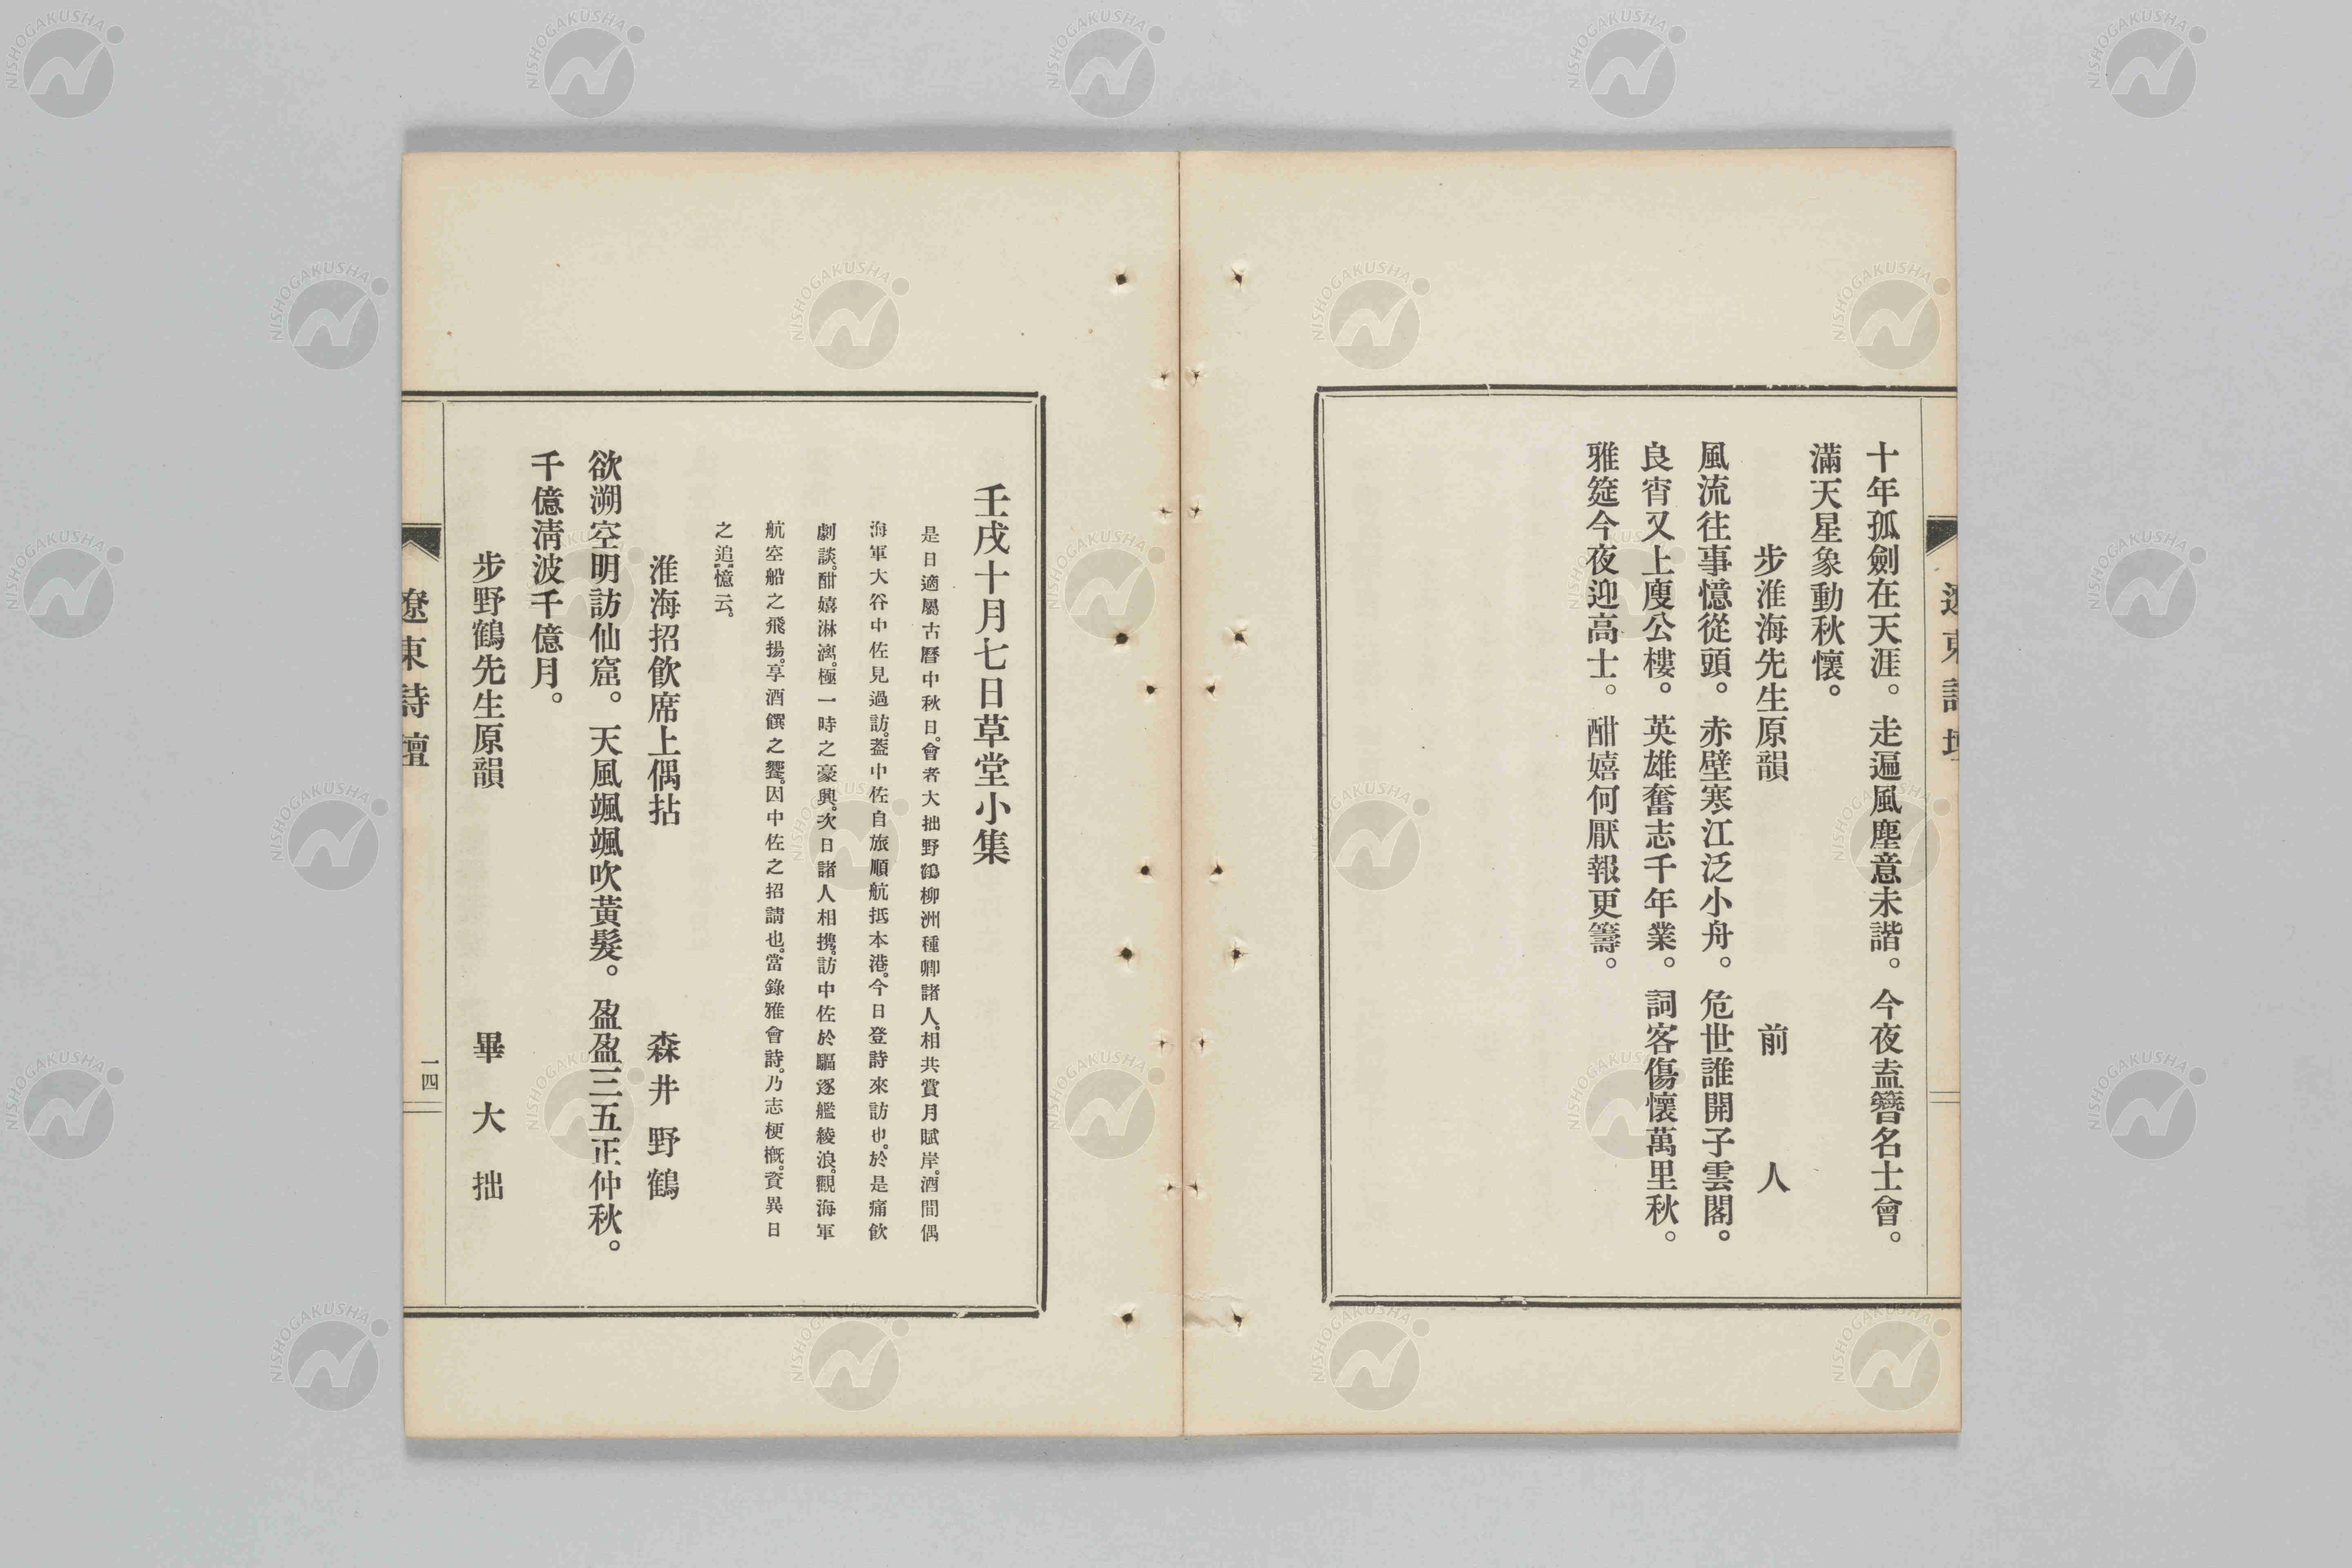 十年孤劍在天涯。走遍風塵意未諧。今夜盍簪名士會。
滿天星象動秋懷。
步淮海先生原韻　前人
風流往事憶從頭。赤壁寒江泛小舟。危世誰開子雲閣。
良宵又上廋公樓。英雄奮志千年業。詞客傷懷萬里秋。
雅筵今夜迎高士。酣嬉何厭報更籌。
壬戌十月七日草堂小集
是日適屬古曆中秋日。會者大拙野鶴柳洲種卿諸人。相共賞月賦岸。酒間偶
海軍大谷中佐見過訪。葢中佐自旅順航抵本港。今日登詩來訪也。於是痛飲
劇談。酣嬉淋漓。極一時之豪興。次日諸人相携。訪中佐於驅逐艦綾浪。觀海軍
航空船之飛揚。享酒饌之饗。因中佐之招請也。當錄雅會詩。乃志梗概。資異日
之追憶云。
淮海招飲席上偶拈　森井野鶴
欲溯空明訪仙窟。天風颯颯吹黃髮。盈盈三五正仲秋。
千億淸波千億月。
步野鶴先生原韻　畢大拙
遼東詩壇
一四
NISHOGAKUSHA